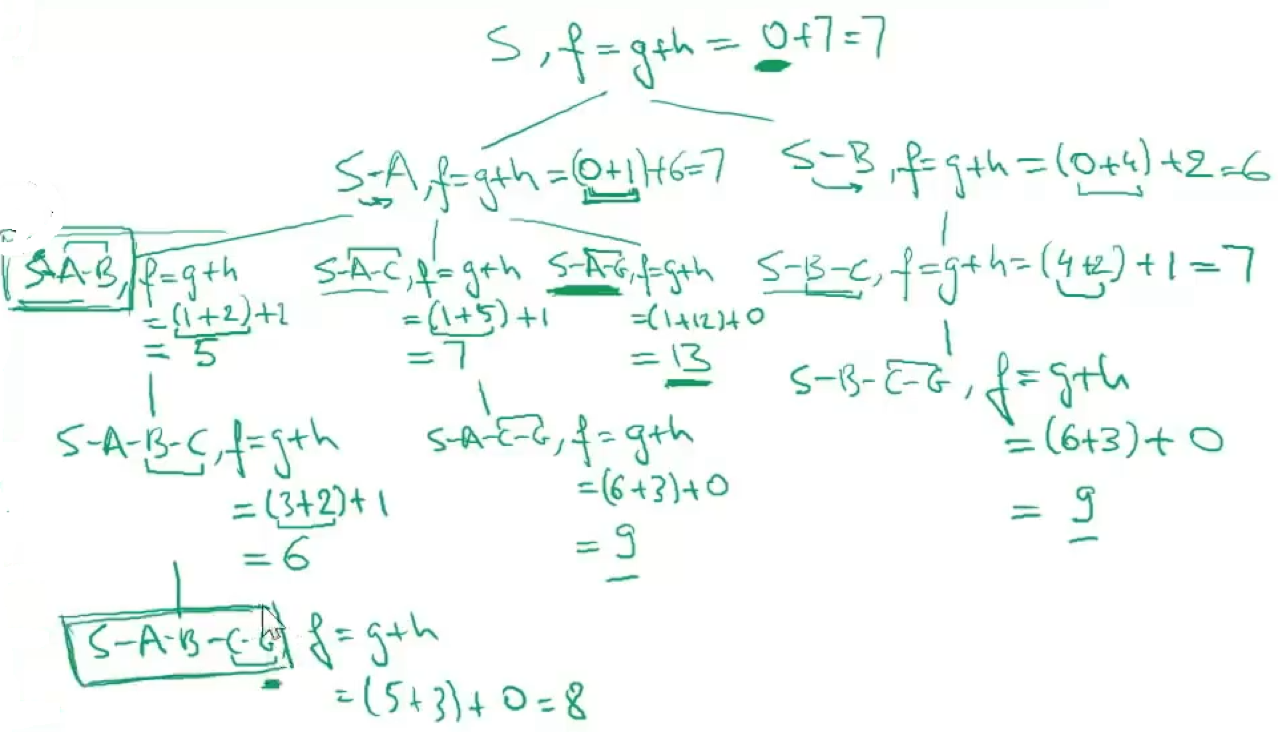 S, f = g+h = 0+7=7
S-A, f=g+h =(0+1)+6=7
S-B, f=g+h =(0+4)+2=6
S-A-B, f=g+h
=(1+2)+2
= 5
S-A-C, f=g+h
=(1+5)+1
=7
S-A-G, f=g+h
=(1+12)+0
= 13
S-B-C, f=g+h=(4+2)+1=7
S-A-B-C, f=g+h
=(3+2)+1
=6
S-A-C-G, f=g+h
=(6+3)+0
=9
S-B-C-G, f=g+h
=(6+3)+0
= 9
S-A-B-C-G f=g+h
=(5+3)+0=8